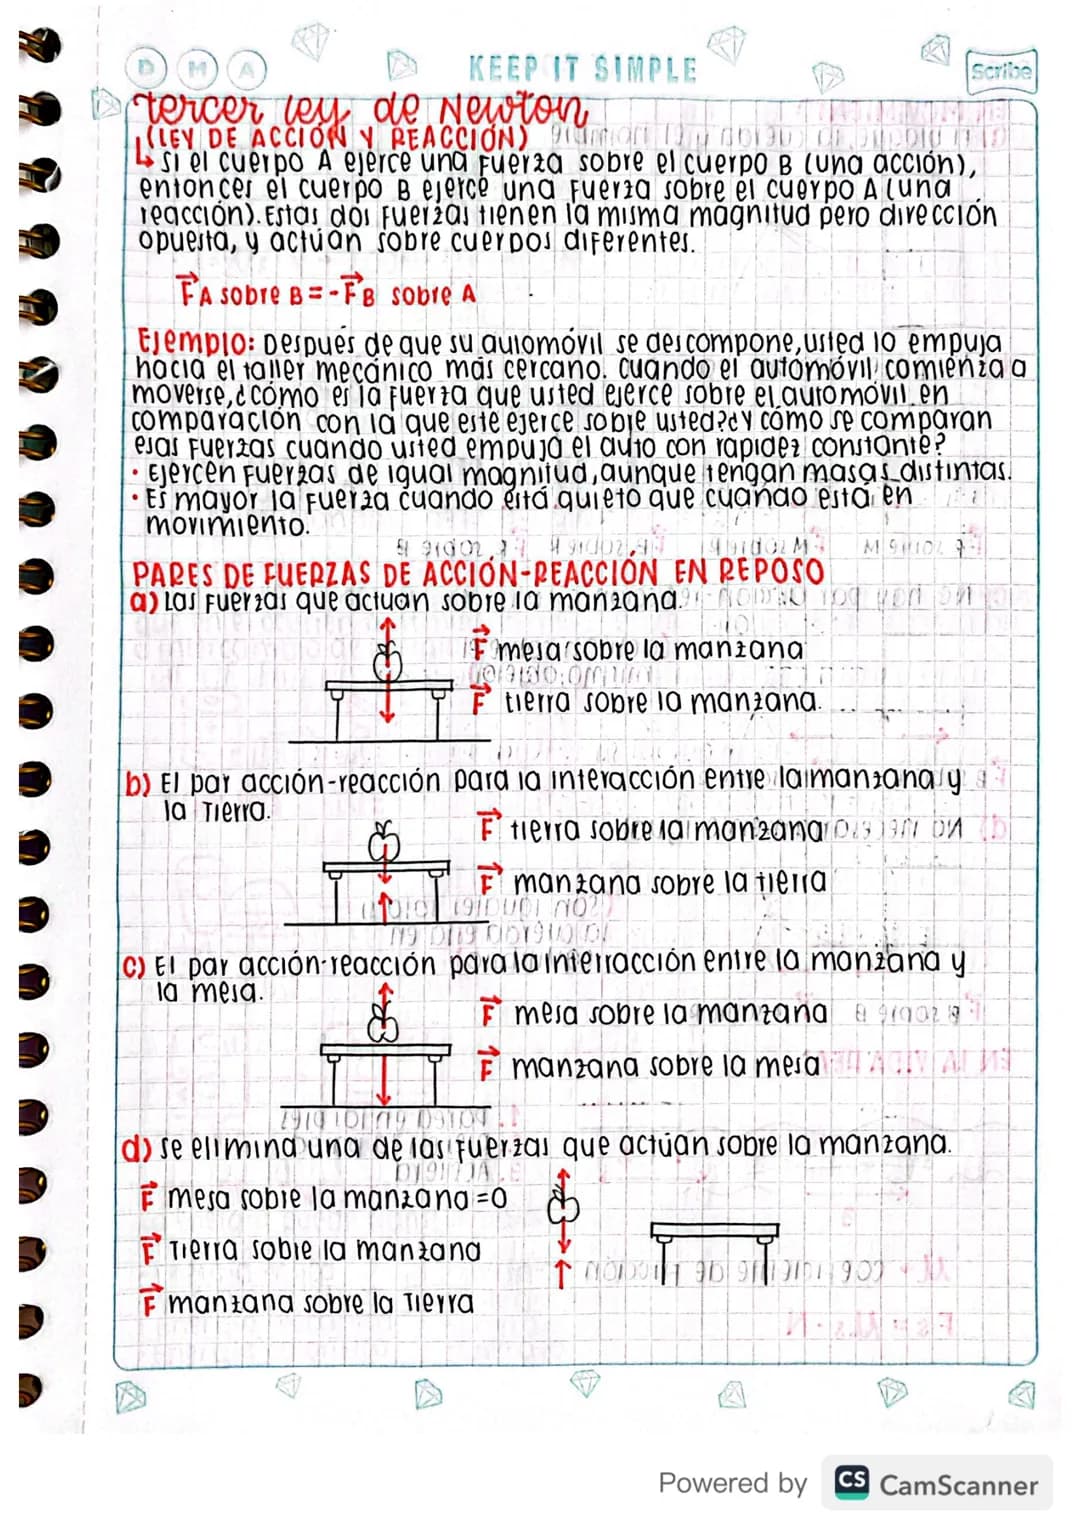 D M A
KEEP IT SIMPLE
Scribe
tercer ley de Newton
(LEY DE ACCIÓN Y REACCIÓN)
↳ si el cuerpo A ejerce una fuerza sobre el cuerpo B (una acción),
entonces el cuerpo B ejerce una fuerza sobre el cuerpo A (una
reacción). Estas dos fuerzas tienen la misma magnitud pero dirección
opuesta, y actúan sobre cuerpos diferentes.
F⃗A sobre B = -F⃗B sobre A
Ejemplo: Después de que su automóvil se descompone, usted lo empuja
hacia el taller mecánico más cercano. Cuando el automóvil comienza a
moverse, ¿cómo es la fuerza que usted ejerce sobre el automóvil en
comparación con la que este ejerce sobre usted? ¿Y cómo se comparan
esas fuerzas cuando usted empuja el auto con rapidez constante?
• Ejercen fuerzas de igual magnitud, aunque tengan masas distintas.
• Es mayor la fuerza cuando está quieto que cuando está en
movimiento.
PARES DE FUERZAS DE ACCIÓN-REACCIÓN EN REPOSO
a) Las fuerzas que actuan sobre la manzana.
F⃗ mesa sobre la manzana
F⃗ tierra sobre la manzana.
b) El par acción-reacción para la interacción entre la manzana y
la Tierra.
F⃗ tierra sobre la manzana
F⃗ manzana sobre la tierra
c) El par acción-reacción para la interracción entre la manzana y
la mesa.
F⃗ mesa sobre la manzana
F⃗ manzana sobre la mesa
d) se elimina una de las fuerzas que actúan sobre la manzana.
F⃗ mesa sobre la manzana = 0
F⃗ Tierra sobre la manzana
F⃗ manzana sobre la Tierra
Powered by CS CamScanner